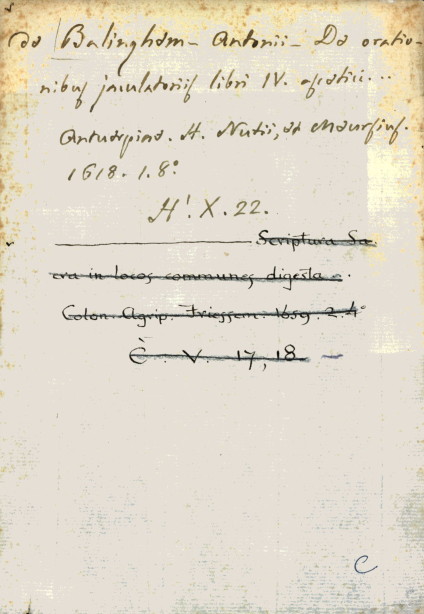 de Balinghem - Antonii - De oratio-
nibus jaculatoriis libri IV. ascetici...
Antuerpiae. H. Nutii, et Meursius.
1618. 1. 8°
H'. X. 22.
Scriptura Sa
cra in locos communes digesta.
Colon. Agrip. Friessem. 1659. 2. 4°
È. V. 17, 18 —
C